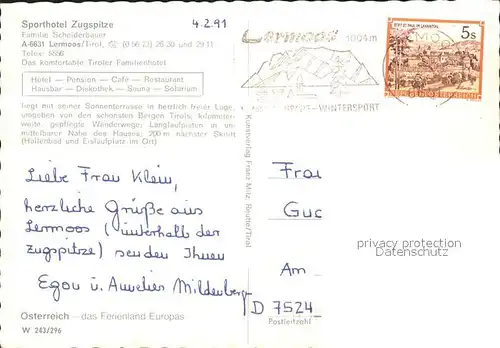 Sporthotel Zugspitze
4.2.91
Familie Scheiderbauer
A-6631 Lermoos/Tirol, (0 56 73) 26 30 und 29 11
Telex: 5556
Das komfortable Tiroler Familienhotel
Hotel — Pension — Café — Restaurant
Hausbar — Diskothek — Sauna — Solarium
liegt mit seiner Sonnenterrasse in herrlich freier Lage,
umgeben von den schönsten Bergen Tirols; kilometer-
weite, gepflegte Wanderwege; Langlaufpisten in un-
mittelbarer Nähe des Hauses; 200 m nächster Skilift
(Hallenbad und Eislaufplatz im Ort)
Liebe Frau Klein,
herzliche Grüße aus
Lermoos (unterhalb der
Zugspitze) senden Ihnen
Egon u. Aurelier Mildenberger
Österreich – das Ferienland Europas
W 243/296
Kunstverlag Franz Milz, Reutte/Tirol
Lermoos
1004m
WINTERSPORT
5s
REPUBLIK ÖSTERREICH
Frau
Guc
Am
D 7524
Postleitzahl
privacy protection
Datenschutz